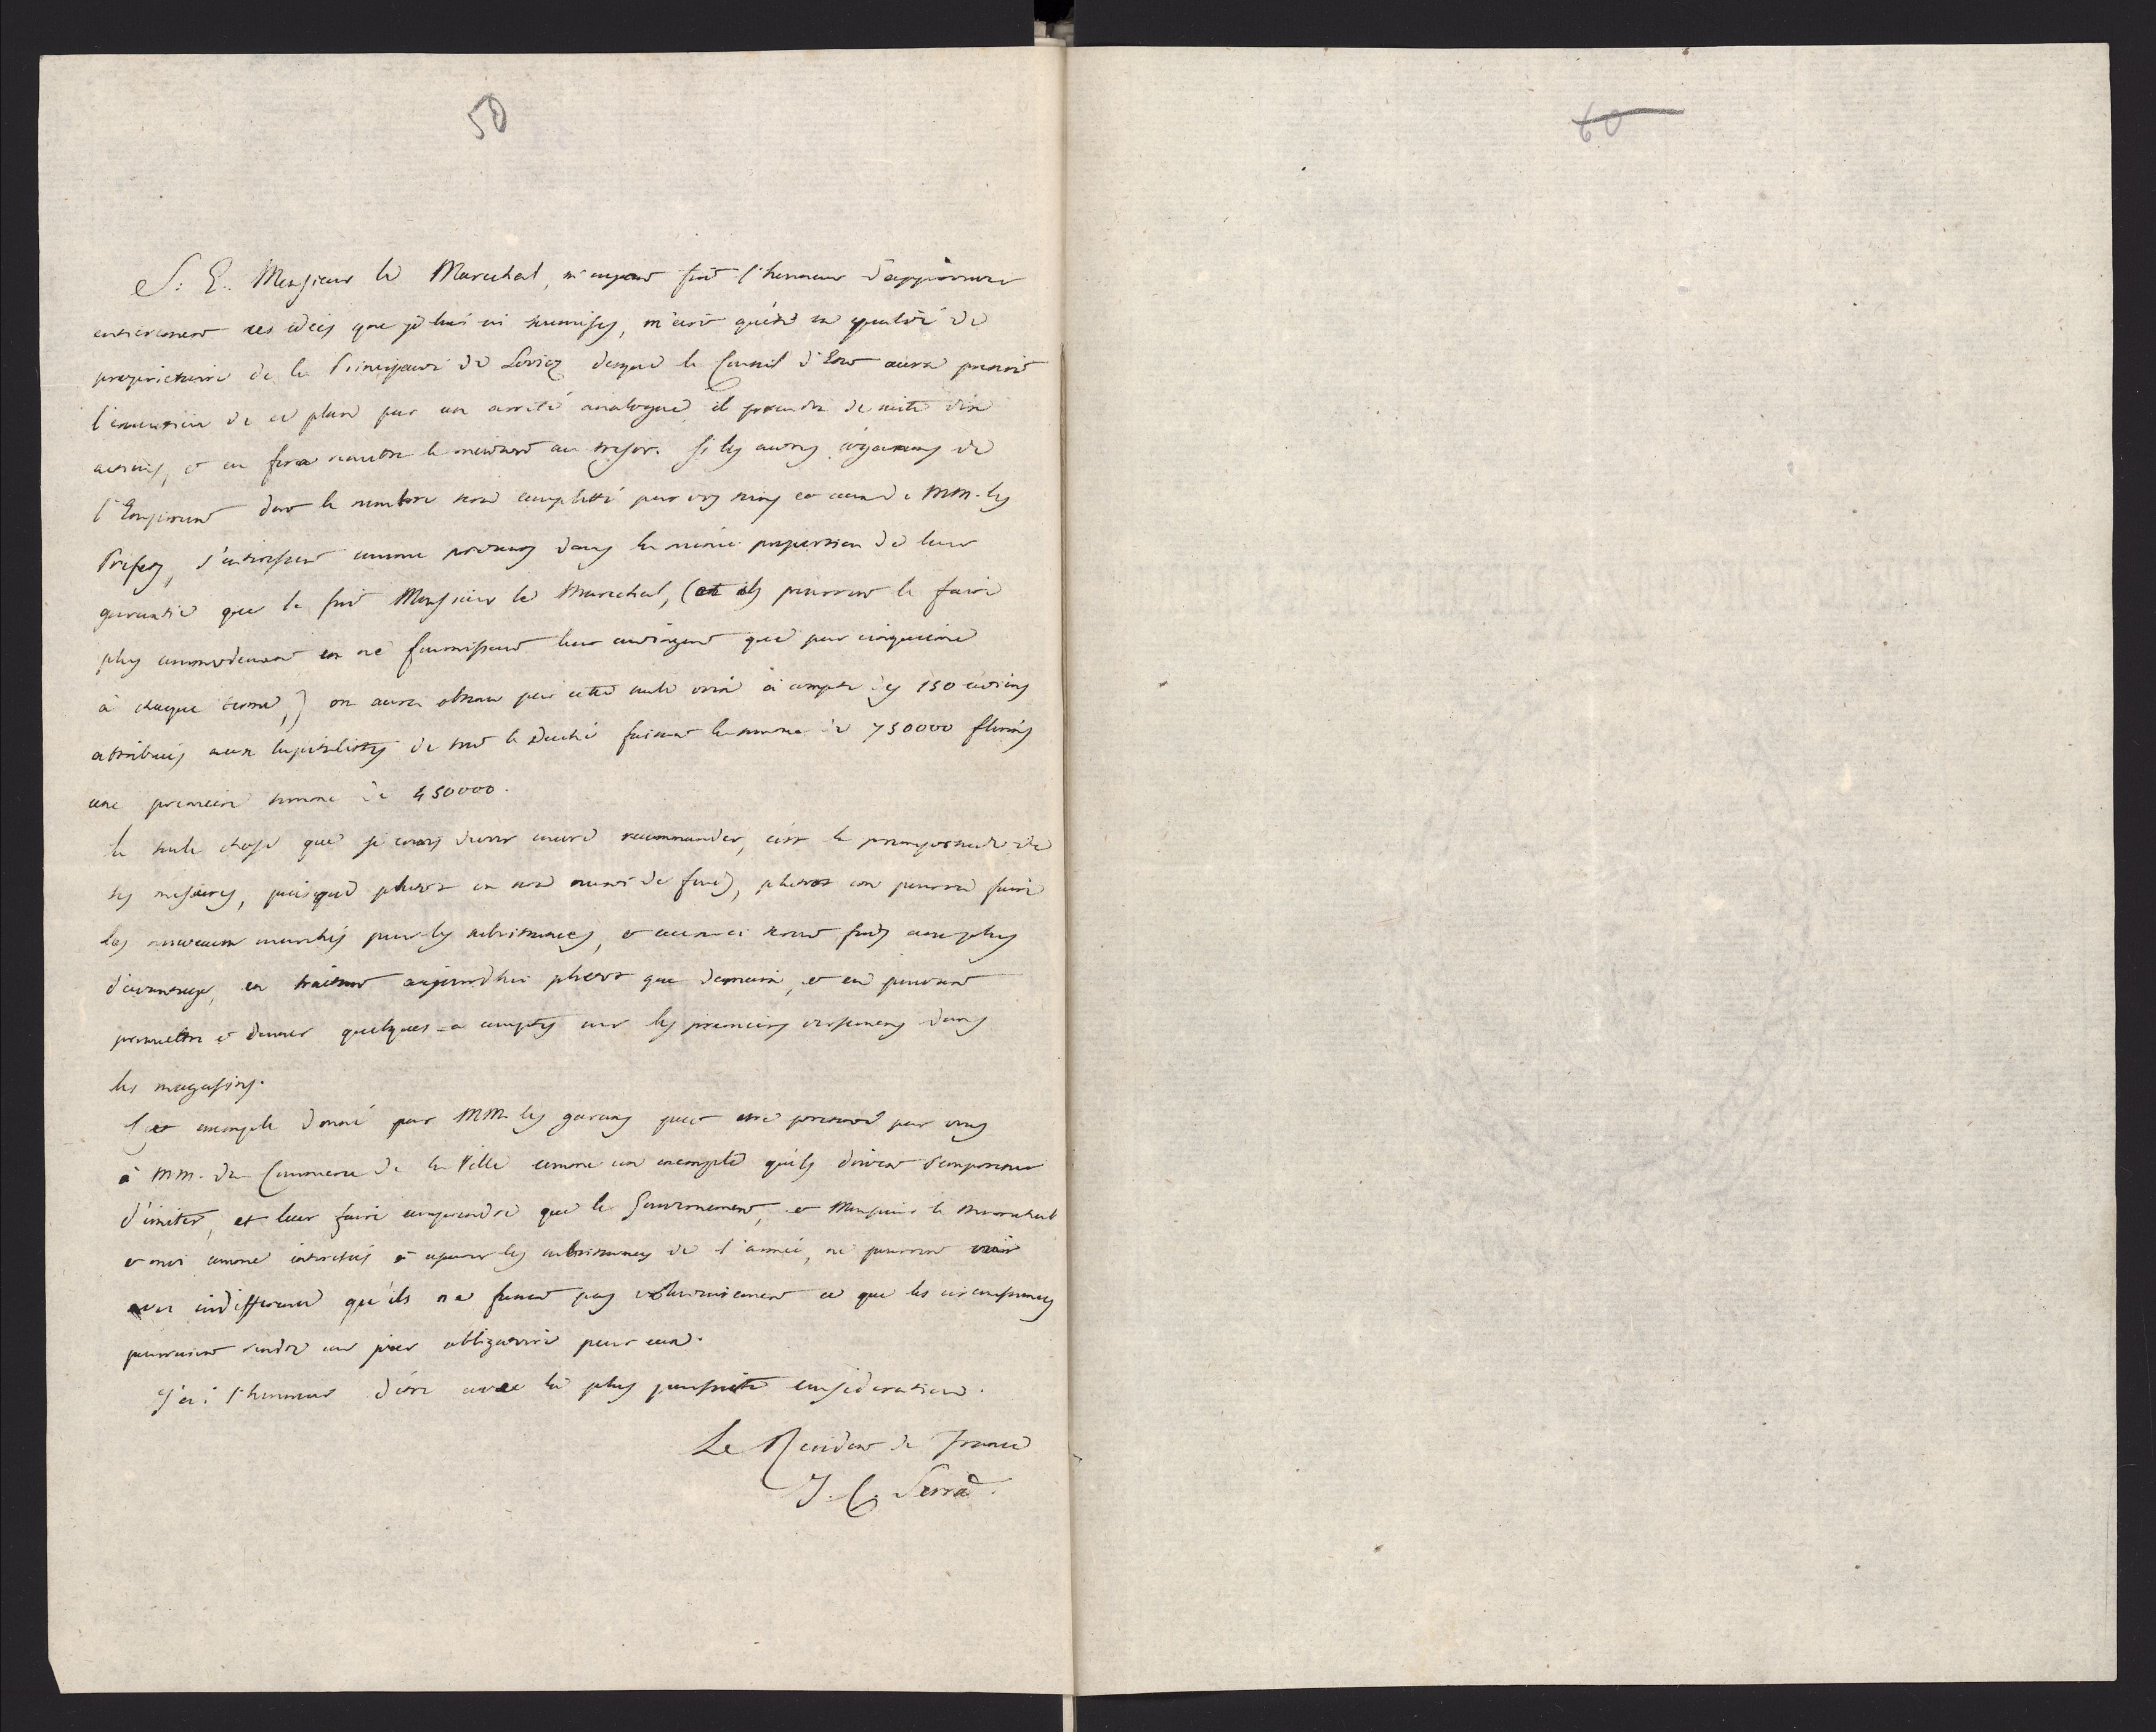 50
60
S. E. Monsieur le Marechal, m'ayant fait l'honneur d'approuver
entierement ces idées que je lui ai soumises, m'écrit qu'en sa qualité de
proprietaire de la Principauté de Lovicz desque le Conseil d'Etat aura prescrit
l'execution de ce plan par un arrêté analogue il prendra de suite dix
actions, et en fera remettre le montant au tresor. Si les autres garans de
l'Emprunt dont le nombre sera completté par vos soins et ceux de MM. les
Prefets, s'interessent comme preneurs dans la même proportion de leur
garantie que le fait Monsieur le Marechal, (et ils pourront le faire
plus commodement en ne fournissant leur contingent que par cinquieme
à chaque terme,) on aura obtenu par cette seule voie à compte des 150 actions
attribuées aux Capitalistes de tout le Duché faisant la somme de 750000 florins
une premiere somme de 450000.
la seule chose que je crois devoir encore recommander, c'est la promptitude de
ces mesures, puisque plutot on sera muni de fonds, plutot on pourra faire
les nouveaux marchés pour les subsistances, et ceux-ci seront faits avec plus
d'avantage, en traitant aujourdhui plutot que demain, et en pouvant
promettre et donner quelques a comptes sur les premiers versemens dans
les magasins.
Cet exemple donné par MM. les garans peut etre presenté par vous
à MM. du Commerce de la Ville comme un exemple qu'ils doivent s'empresser
d'imiter, et leur faire comprendre que le Gouvernement, et Monsieur le Marechal
et moi comme interessés à assurer les subsistances de l'armée, ne pourront voir
avec indifference qu'ils ne fassent pas volontairement ce que les circonstances
pourraient rendre un jour obligatoire pour eux.
J'ai l'honneur d'être avec la plus parfaite consideration.
Le Resident de France
J. C. Serra.